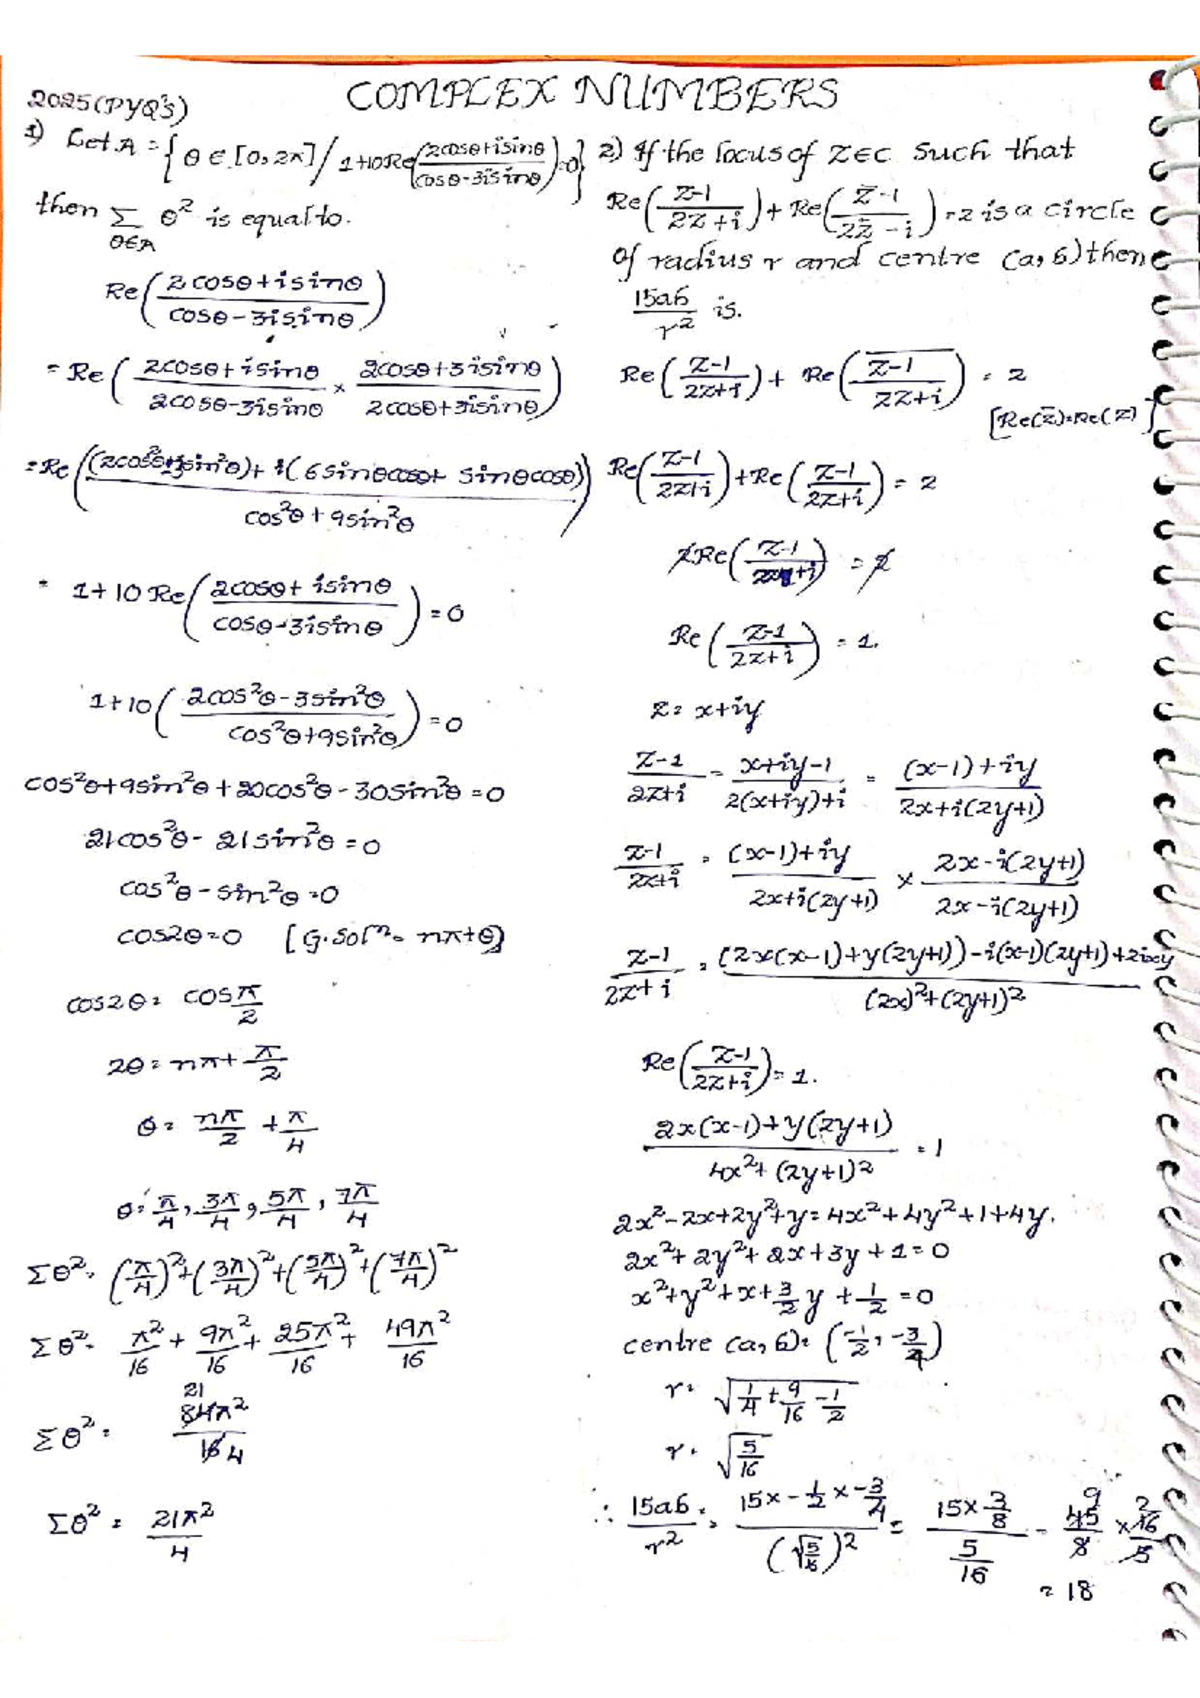 COMPLEX NUMBERS
2025(PYQ'S)
1) Let A = {θ ∈ [0, 2π] / 1+10Re((2cosθ+isinθ)/(cosθ-3isinθ))=0}
then Σ_{θ∈A} θ² is equal to.
Re((2cosθ+isinθ)/(cosθ-3isinθ))
= Re((2cosθ+isinθ)/(2cosθ-3isinθ) × (2cosθ+3isinθ)/(2cosθ+3isinθ))
= Re(((2cos²θ-3sin²θ)+i(6sinθcosθ+sinθcosθ))/(cos²θ+9sin²θ))
= 1+10Re((2cosθ+isinθ)/(cosθ-3isinθ))=0
1+10((2cos²θ-3sin²θ)/(cos²θ+9sin²θ))=0
cos²θ+9sin²θ+20cos²θ-30sin²θ=0
21cos²θ-21sin²θ=0
cos²θ-sin²θ=0
cos2θ=0 [G.Solⁿ= nπ+θ]
cos2θ= cos π/2
2θ= nπ+ π/2
θ= nπ/2 + π/4
θ= π/4, 3π/4, 5π/4, 7π/4
Σθ²= (π/4)²+(3π/4)²+(5π/4)²+(7π/4)²
Σθ²= π²/16 + 9π²/16 + 25π²/16 + 49π²/16
21
Σθ²= 84π²/16 4
Σθ²= 21π²/4
2) If the locus of Z∈C Such that
Re((Z-1)/(2Z+i))+Re((Z̄-1)/(2Z̄-i))=2 is a circle
of radius r and centre (a,b) then
15ab/r² is.
Re((Z-1)/(2Z+i))+ Re(‾((Z-1)/(2Z+i))) = 2
[Re(Z̄)=Re(Z)]
Re((Z-1)/(2Z+i))+Re((Z-1)/(2Z+i)) = 2
2Re((Z-1)/(2Z+i)) = 2
Re((Z-1)/(2Z+i)) = 1.
Z= x+iy
(Z-1)/(2Z+i) = (x+iy-1)/(2(x+iy)+i) = ((x-1)+iy)/(2x+i(2y+1))
(Z-1)/(2Z+i) = ((x-1)+iy)/(2x+i(2y+1)) × (2x-i(2y+1))/(2x-i(2y+1))
(Z-1)/(2Z+i) = ((2x(x-1)+y(2y+1))-i(x-1)(2y+1)+2ixy)/((2x)²+(2y+1)²)
Re((Z-1)/(2Z+i))= 1.
(2x(x-1)+y(2y+1))/(4x²+(2y+1)²) = 1
2x²-2x+2y²+y=4x²+4y²+1+4y.
2x²+2y²+2x+3y+1=0
x²+y²+x+3/2y+1/2=0
centre (a,b)= (-1/2, -3/4)
r= √(1/4+9/16-1/2)
r= √(5/16)
∴ 15ab/r² = (15x-1/2x-3/4)/(√(5/16))² = (15×3/8)/(5/16) = 45/8 9 × 16/5 2
= 18